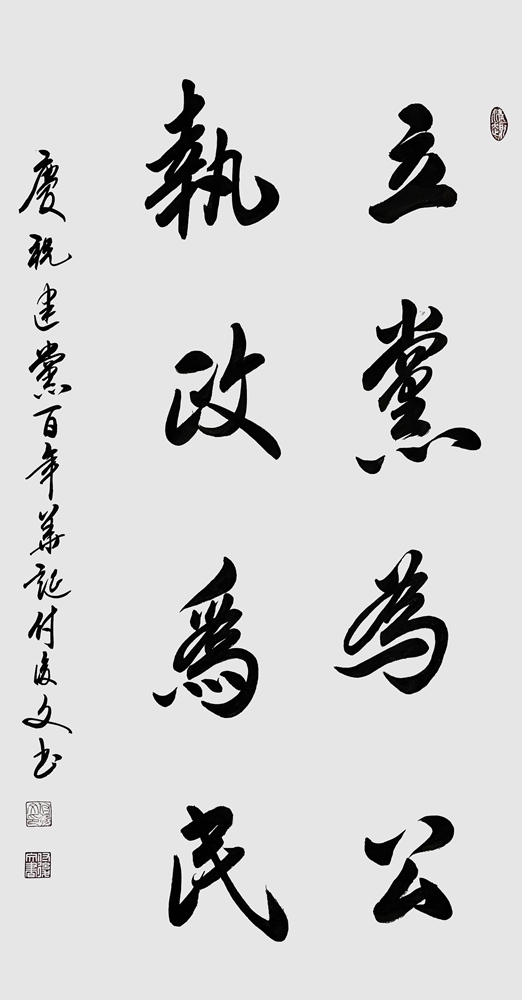 立黨為公
執政爲民
慶祝建黨百年華誕付俊文书